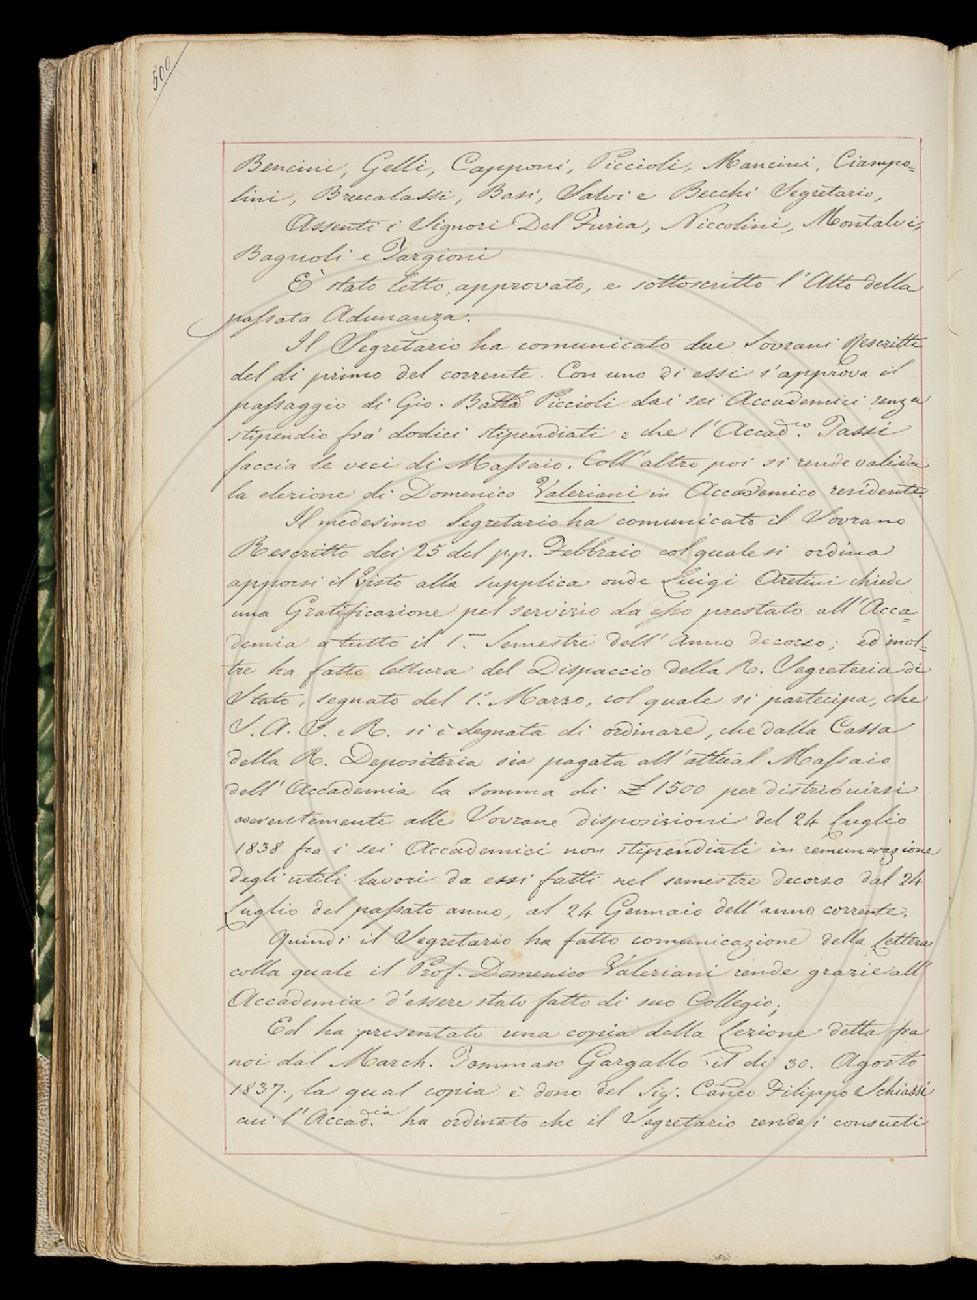 500
Bencini, Gelli, Capponi, Piccioli, Mancini, Ciampo=
lini, Brucalassi, Basi, Salvi e Becchi Segretario,
Assenti i Signori Del Furia, Niccolini, Montalvi,
Bagnoli e Targioni
È stato letto, approvato, e sottoscritto l'Atto della
passata Adunanza.
Il Segretario ha comunicato due Sovrani Rescritti
del dì primo del corrente. Con uno di essi s'approva il
passaggio di Gio. Batta Piccioli dai sei Accademici senza
stipendio fra' dodici stipendiati e che l'Accad.co Tassi
faccia le veci di Massaio. Coll'altro poi si rende valida
la elezione di Domenico Valeriani in Accademico residente.
Il medesimo Segretario ha comunicato il Sovrano
Rescritto dei 25 del pp. Febbraio col quale si ordina
apporsi il Visto alla supplica onde Luigi Aretini chiede
una Gratificazione pel servizio da esso prestato all'Acca=
demia a tutto il 1.mo Semestre dell'anno decorso; ed inol=
tre ha fatto lettura del Dispaccio della R. Segreteria di
Stato, segnato del 1.° Marzo, col quale si partecipa, che
S. A. I. e R. si è degnata di ordinare, che dalla Cassa
della R. Depositeria sia pagata all'attual Massaio
dell'Accademia la somma di £ 1500 per distribuirsi
coerentemente alle Sovrane disposizioni del 24 Luglio
1838 fra i sei Accademici non stipendiati in remunerazione
degli utili lavori da essi fatti nel semestre decorso dal 24
Luglio del passato anno, al 24 Gennaio dell'anno corrente.
Quindi il Segretario ha fatto comunicazione della Lettera
colla quale il Prof. Domenico Valeriani rende grazie all'
Accademia d'essere stato fatto di suo Collegio;
Ed ha presentato una copia della Lezione detta fra
noi dal March. Tommaso Gargallo il dì 30. Agosto
1837., la qual copia è dono del Sig. Canco Filippo Schiassi
cui l'Accad.ia ha ordinato che il Segretario renda i consueti